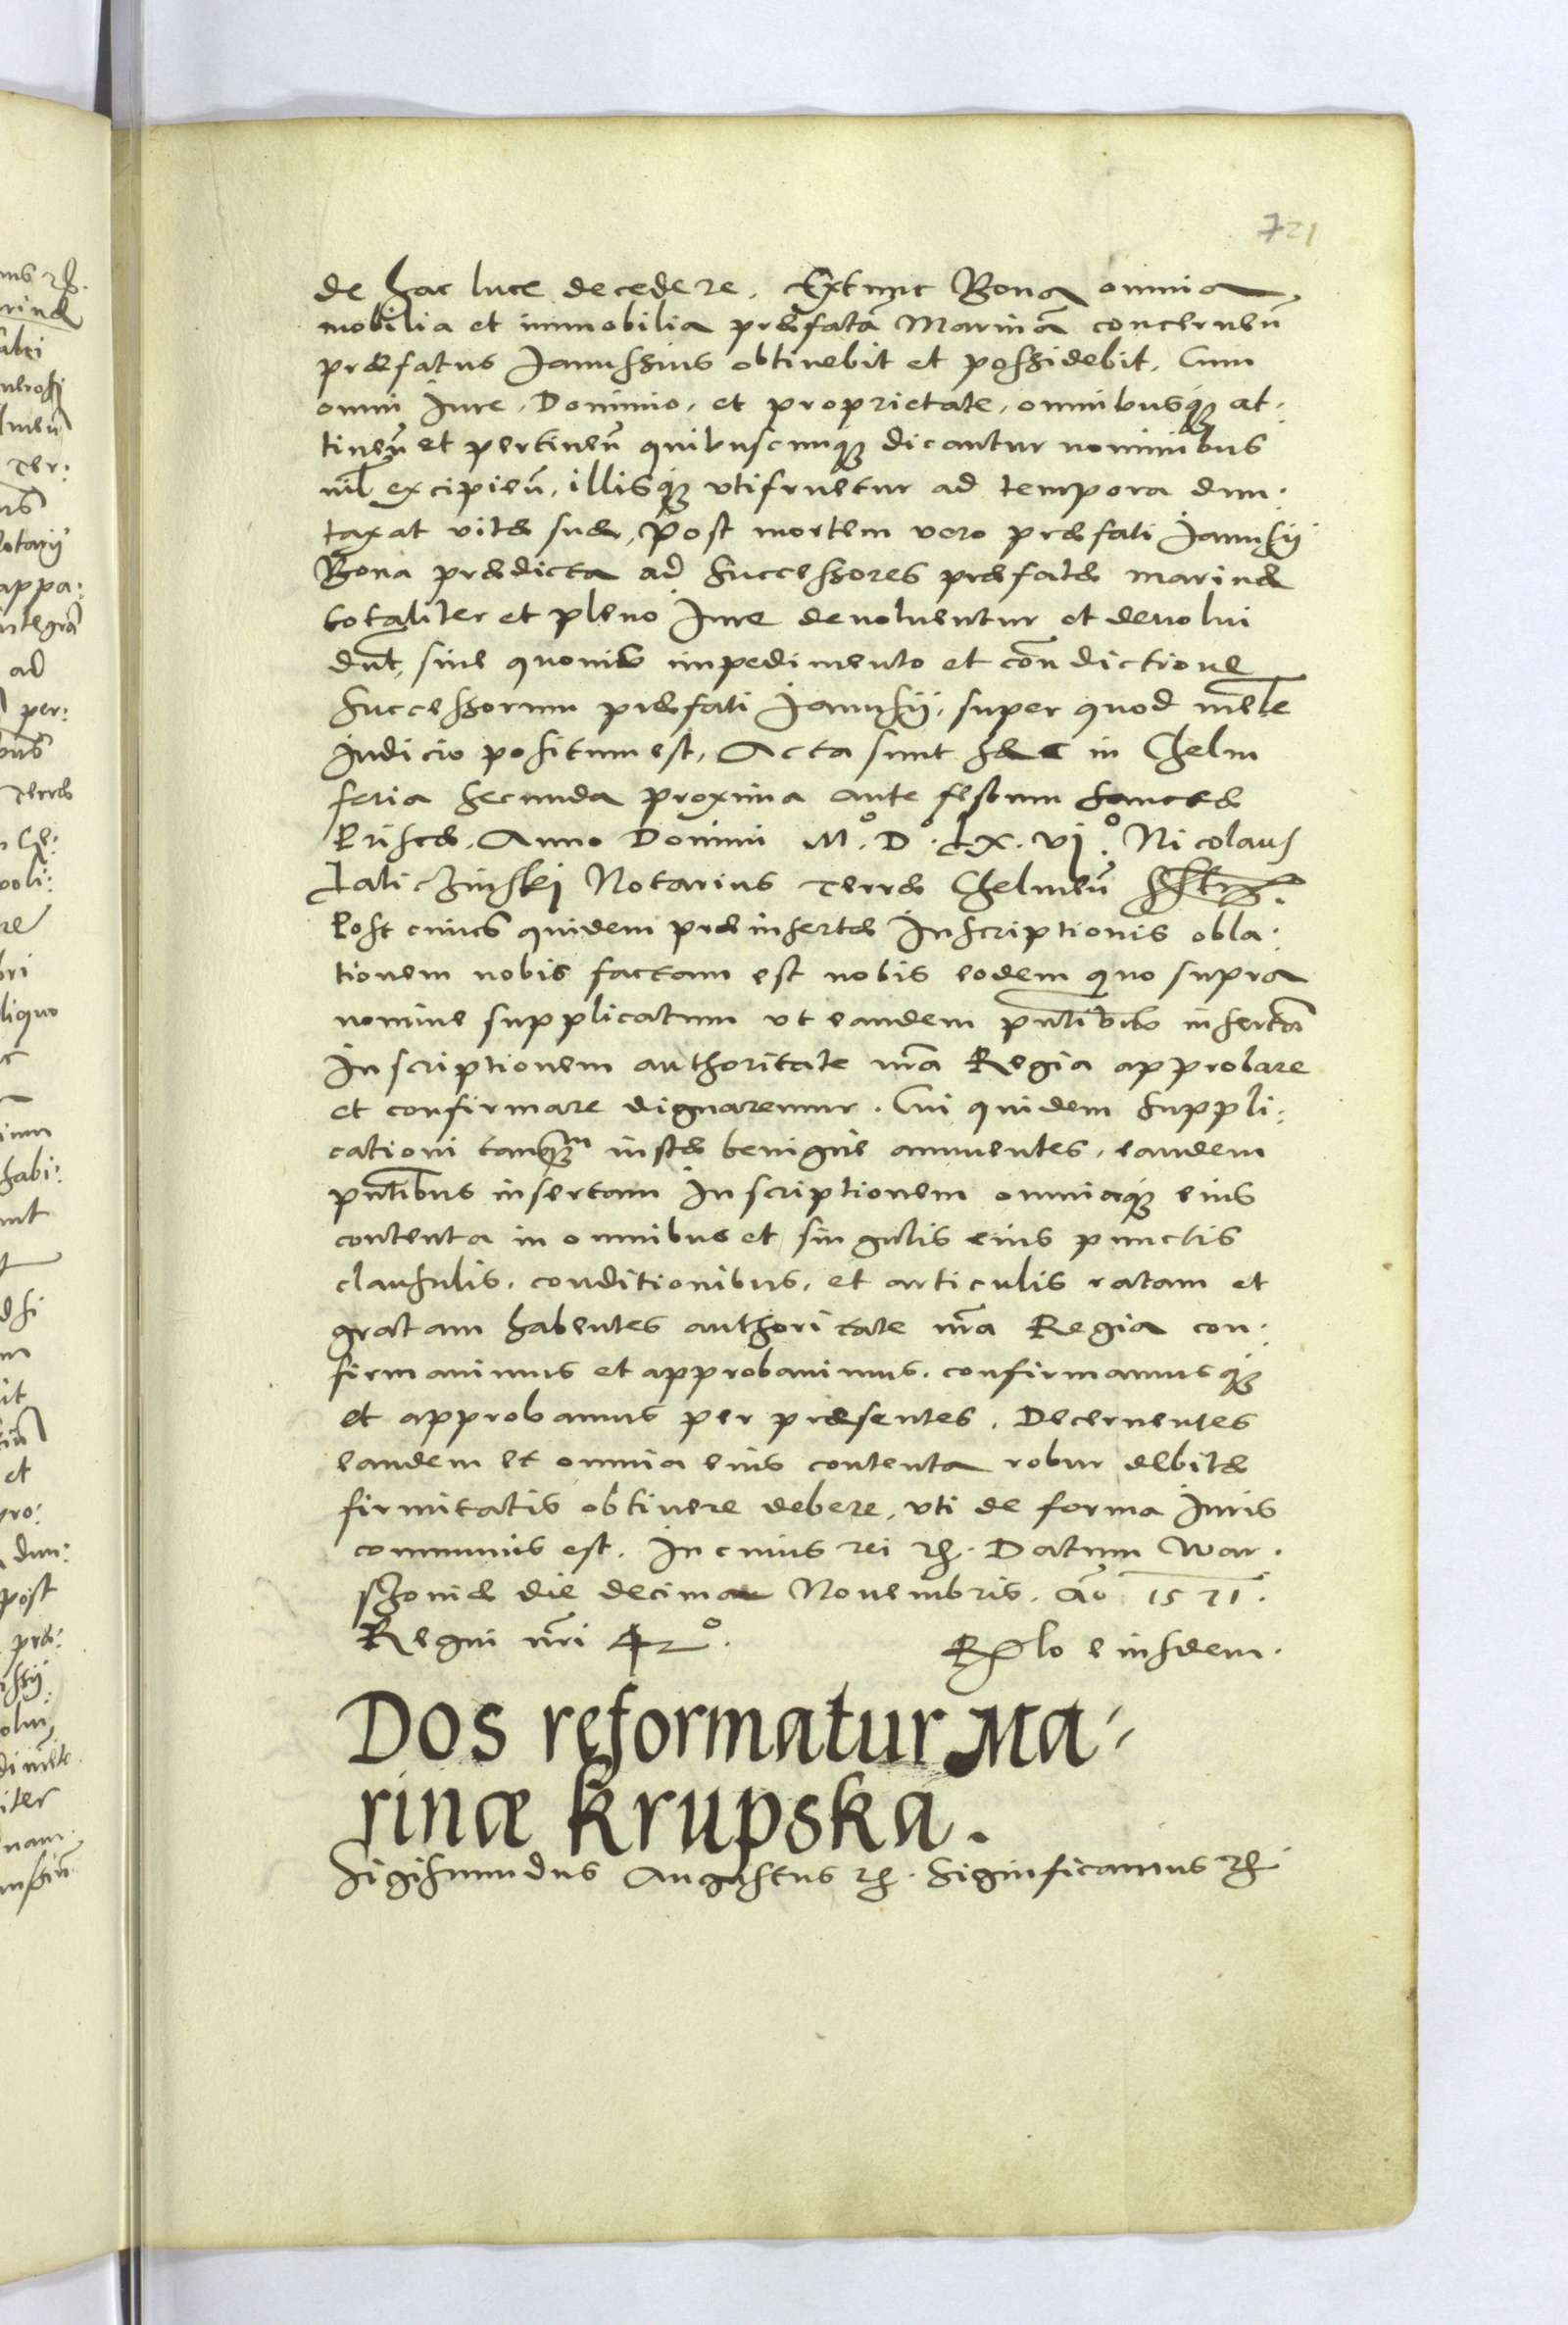 721
de hac luce decedere. Extunc Bona omnia
mobilia et immobilia præfatā Marinā concerneñ
præfatus Janussius obtinebit et possidebit, Cum
omni Jure, Dominio, et proprietate, omnibusq́ȝ at:
tineñ et pertineñ quibuscunqȝ dicantur nominibus
nil excipieñ, illisq́ȝ vtifruetur ad tempora dun:
taxat vitæ suæ, Post mortem vero præfati Janusii
Bona prædicta ad successores præfatæ Marinæ
totaliter et pleno Jure devoluentur et devolui
dnt, sine quovis impedimento et condictione
Successorum præfati Janusii, super quod mēle
Judicio positum est, Acta sunt hæc in Chelm
feria secunda proxima ante festum sanctæ
Priscæ. Anno Domini M°. D°. LX. vj°. Nicolaus
Laticzinski Notarius Terræ Chelmeñ
Post cuius quidem præinsertæ Inscriptionis obla:
tionem nobis factam est nobis eodem quo supra
nomine supplicatum vt eandem pñtibus insertā
Inscriptionem authoritate nr̄a Regia approbare
et confirmare dignaremur. Cui quidem suppli:
cationi tanqȝm iustæ benigne annuentes, eandem
pñtibus insertam Inscriptionem omniaq́ȝ eius
contenta in omnibus et singulis eius punctis
clausulis, conditionibus, et articulis ratam et
gratam habentes authoritate nr̄a Regia con:
firmavimus et approbavimus, confirmamusq́ȝ
et approbamus per præsentes. Decernentes
eandem et omnia eius contenta robur debitæ
firmitatis obtinere debere, vti de forma Juris
communis est. In cuius rei ꝛc. Datum War:
szoviæ die decima Novembris. Aō 1571.
Regni nr̄i 42°. Rēlo eiusdem.
Dos reformatur Ma:
rinæ Krupska.
Sigismundus Augustus ꝛc. Significamus ꝛc